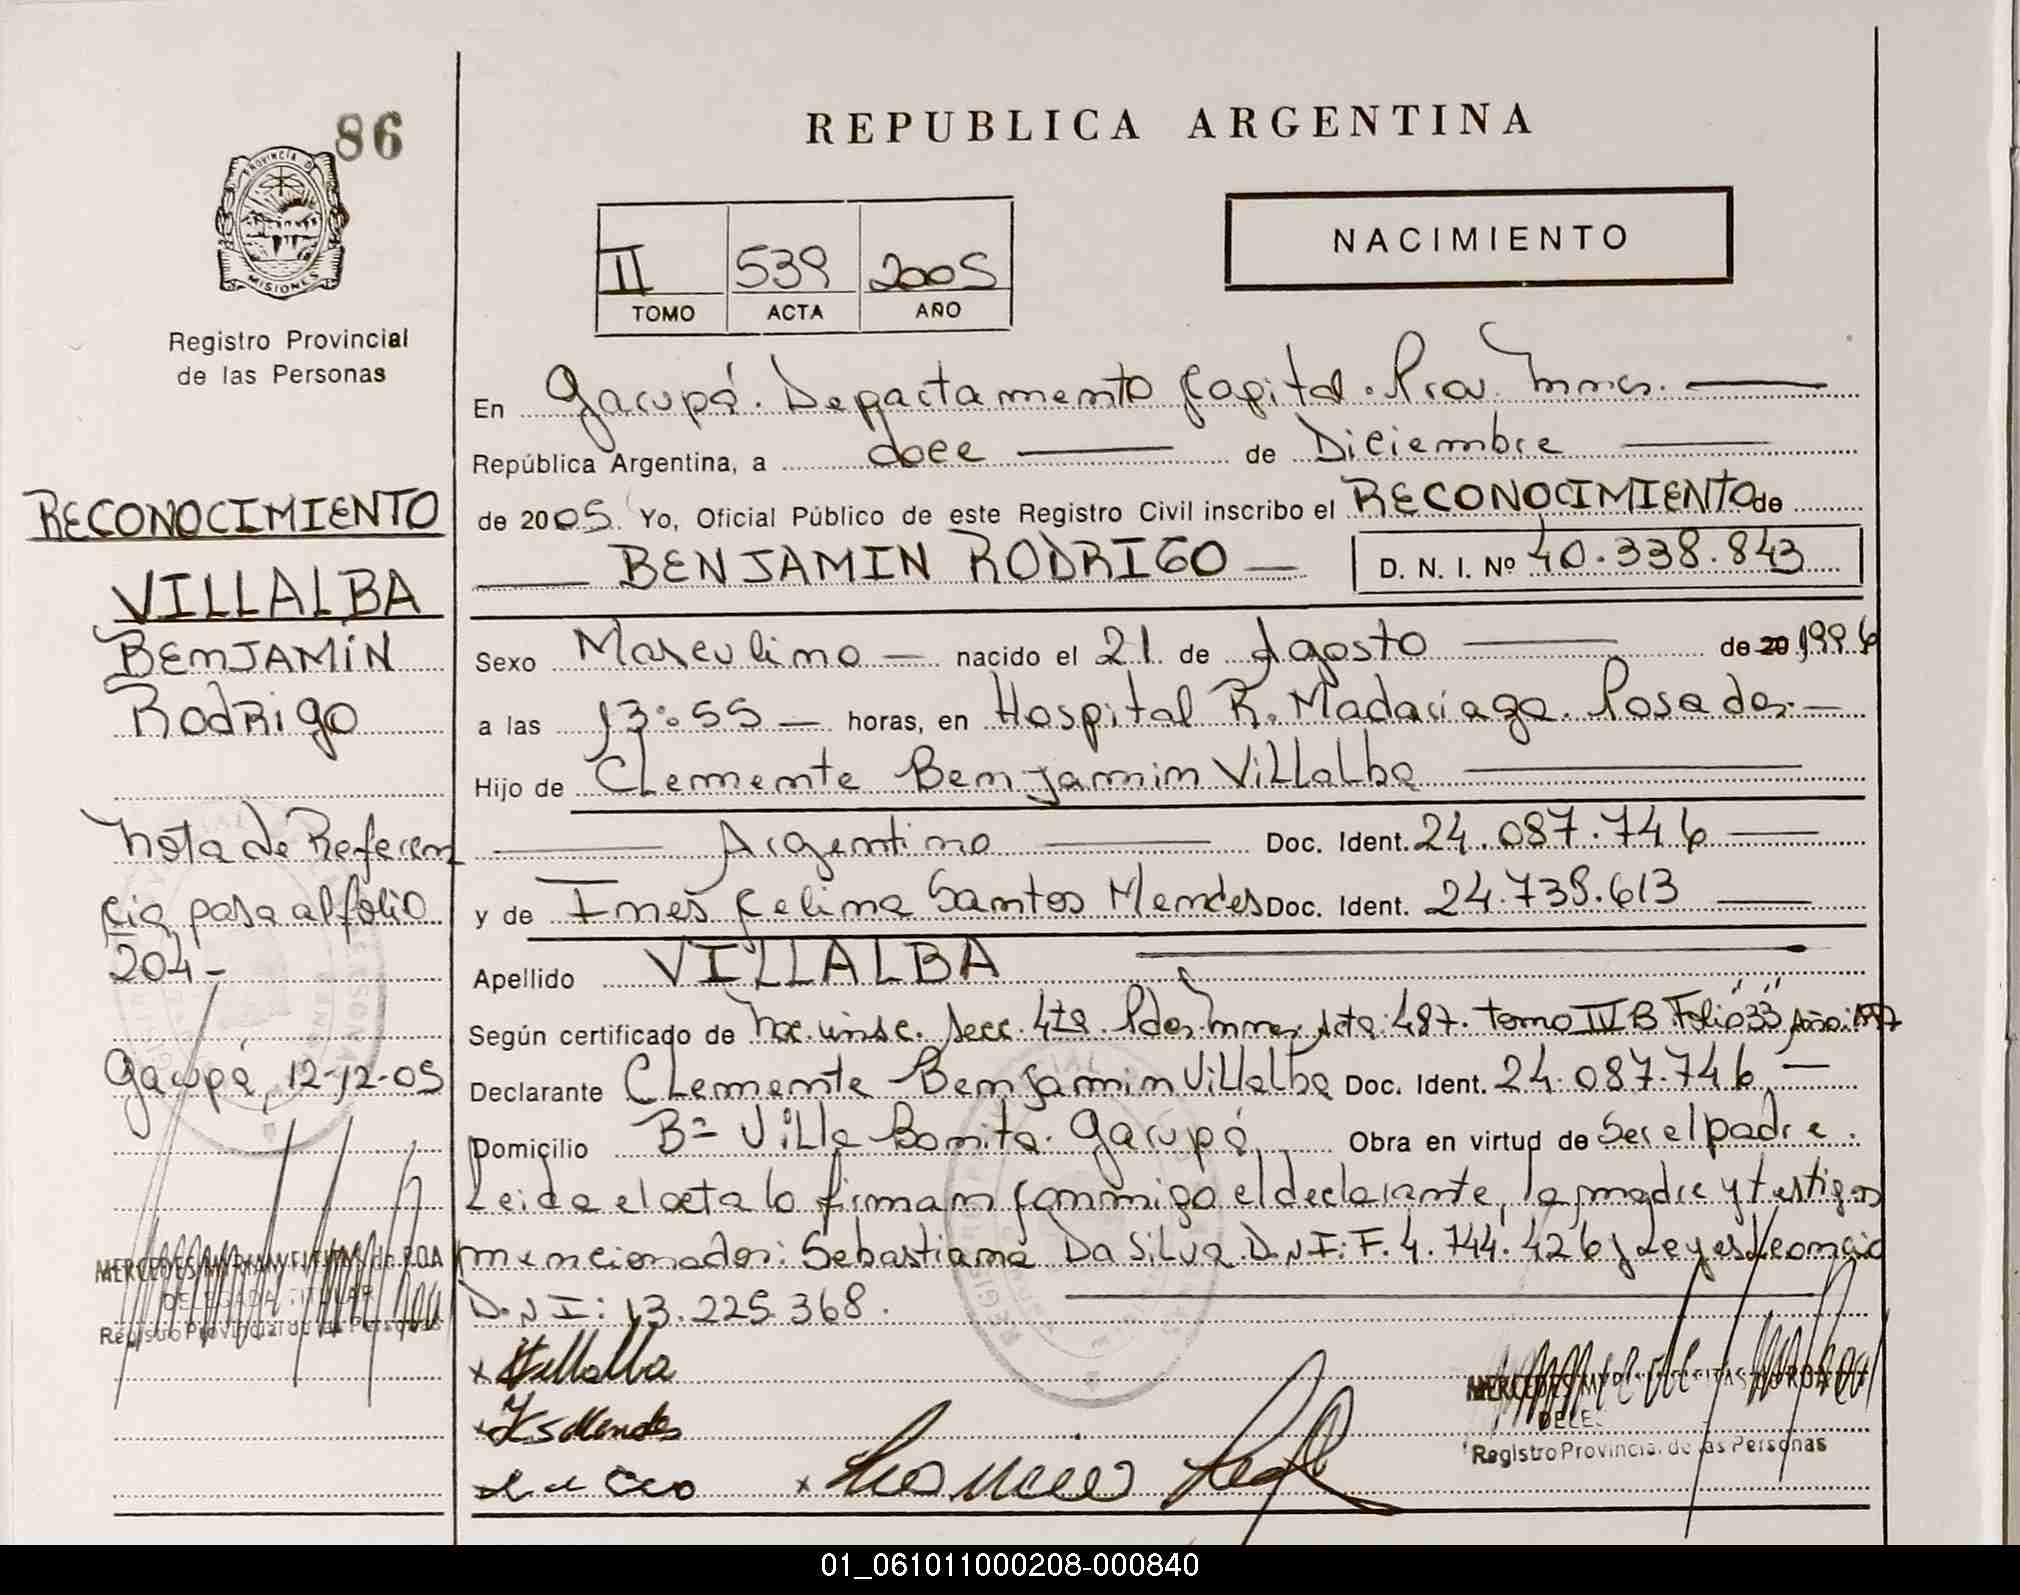 86
REPUBLICA ARGENTINA
PROVINCIA DE
MISIONES
Registro Provincial
de las Personas
II 539 2005
TOMO ACTA AÑO
NACIMIENTO
En Garupá. Departamento Capital. Prov. Mnes.
República Argentina, a doce de Diciembre
de 2005 Yo, Oficial Público de este Registro Civil inscribo el RECONOCIMIENTO de
BENJAMIN RODRIGO D. N. I. Nº 40.338.843
Sexo Masculino nacido el 21 de Agosto de 20 1996
a las 13:55 horas, en Hospital R. Madariaga. Posadas.
Hijo de Clemente Benjamin Villalba
Argentino Doc. Ident. 24.087.746
y de Ines Celina Santos Mendes Doc. Ident. 24.739.613
Apellido VILLALBA
Según certificado de Nac. insc. Secc. 4ta. Pdas. Mnes. Acta: 487. Tomo IV B Folio "33" Año: 1997
Declarante Clemente Benjamin Villalba Doc. Ident. 24.087.746
Domicilio Bº Villa Bonita. Garupá Obra en virtud de Ser el padre.
Leida el acta lo firman conmigo el declarante, la madre y testigos
mencionados: Sebastiana Da Silva D.N.I: F. 4.744.426 y Leyes Leoncio
D.N.I: 13.225.368.
x Villalba
x I S Mendes
RECONOCIMIENTO
VILLALBA
BENJAMIN
Rodrigo
Nota de Referen
cia pasa al folio
204-
Garupá, 12-12-05
MERCEDES MYRIAM FREITAS de ROA
DELEGADA TITULAR
Registro Provincial de las Personas
MERCEDES MYRIAM FREITAS de ROA
Registro Provincial de las Personas
01_061011000208-000840